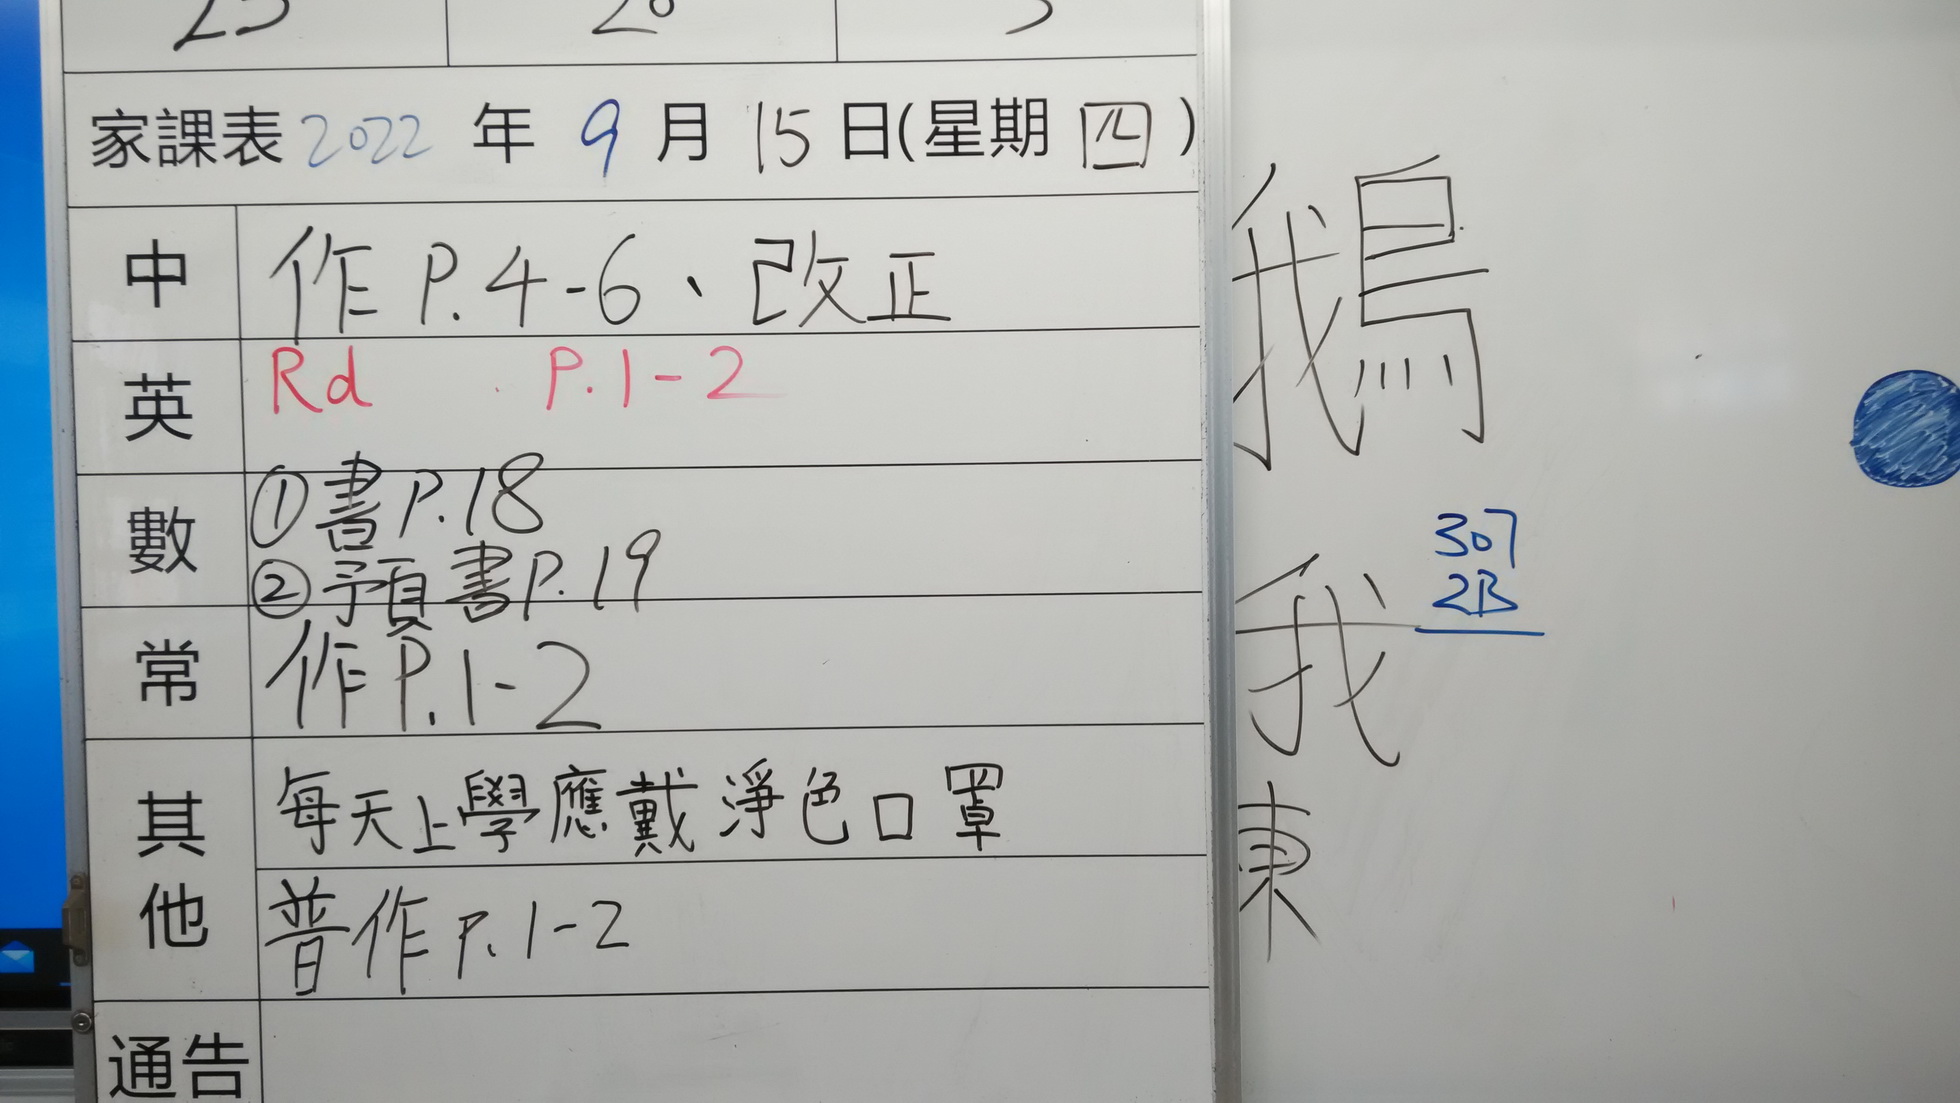 家課表 2022 年 9 月 15 日(星期 四)
中 作 P.4-6、改正
英 Rd P.1-2
數 ①書P.18
②預書P.19
常 作P.1-2
其他 每天上學應戴淨色口罩
普作 P.1-2
通告
鵝
307
2B
我
東